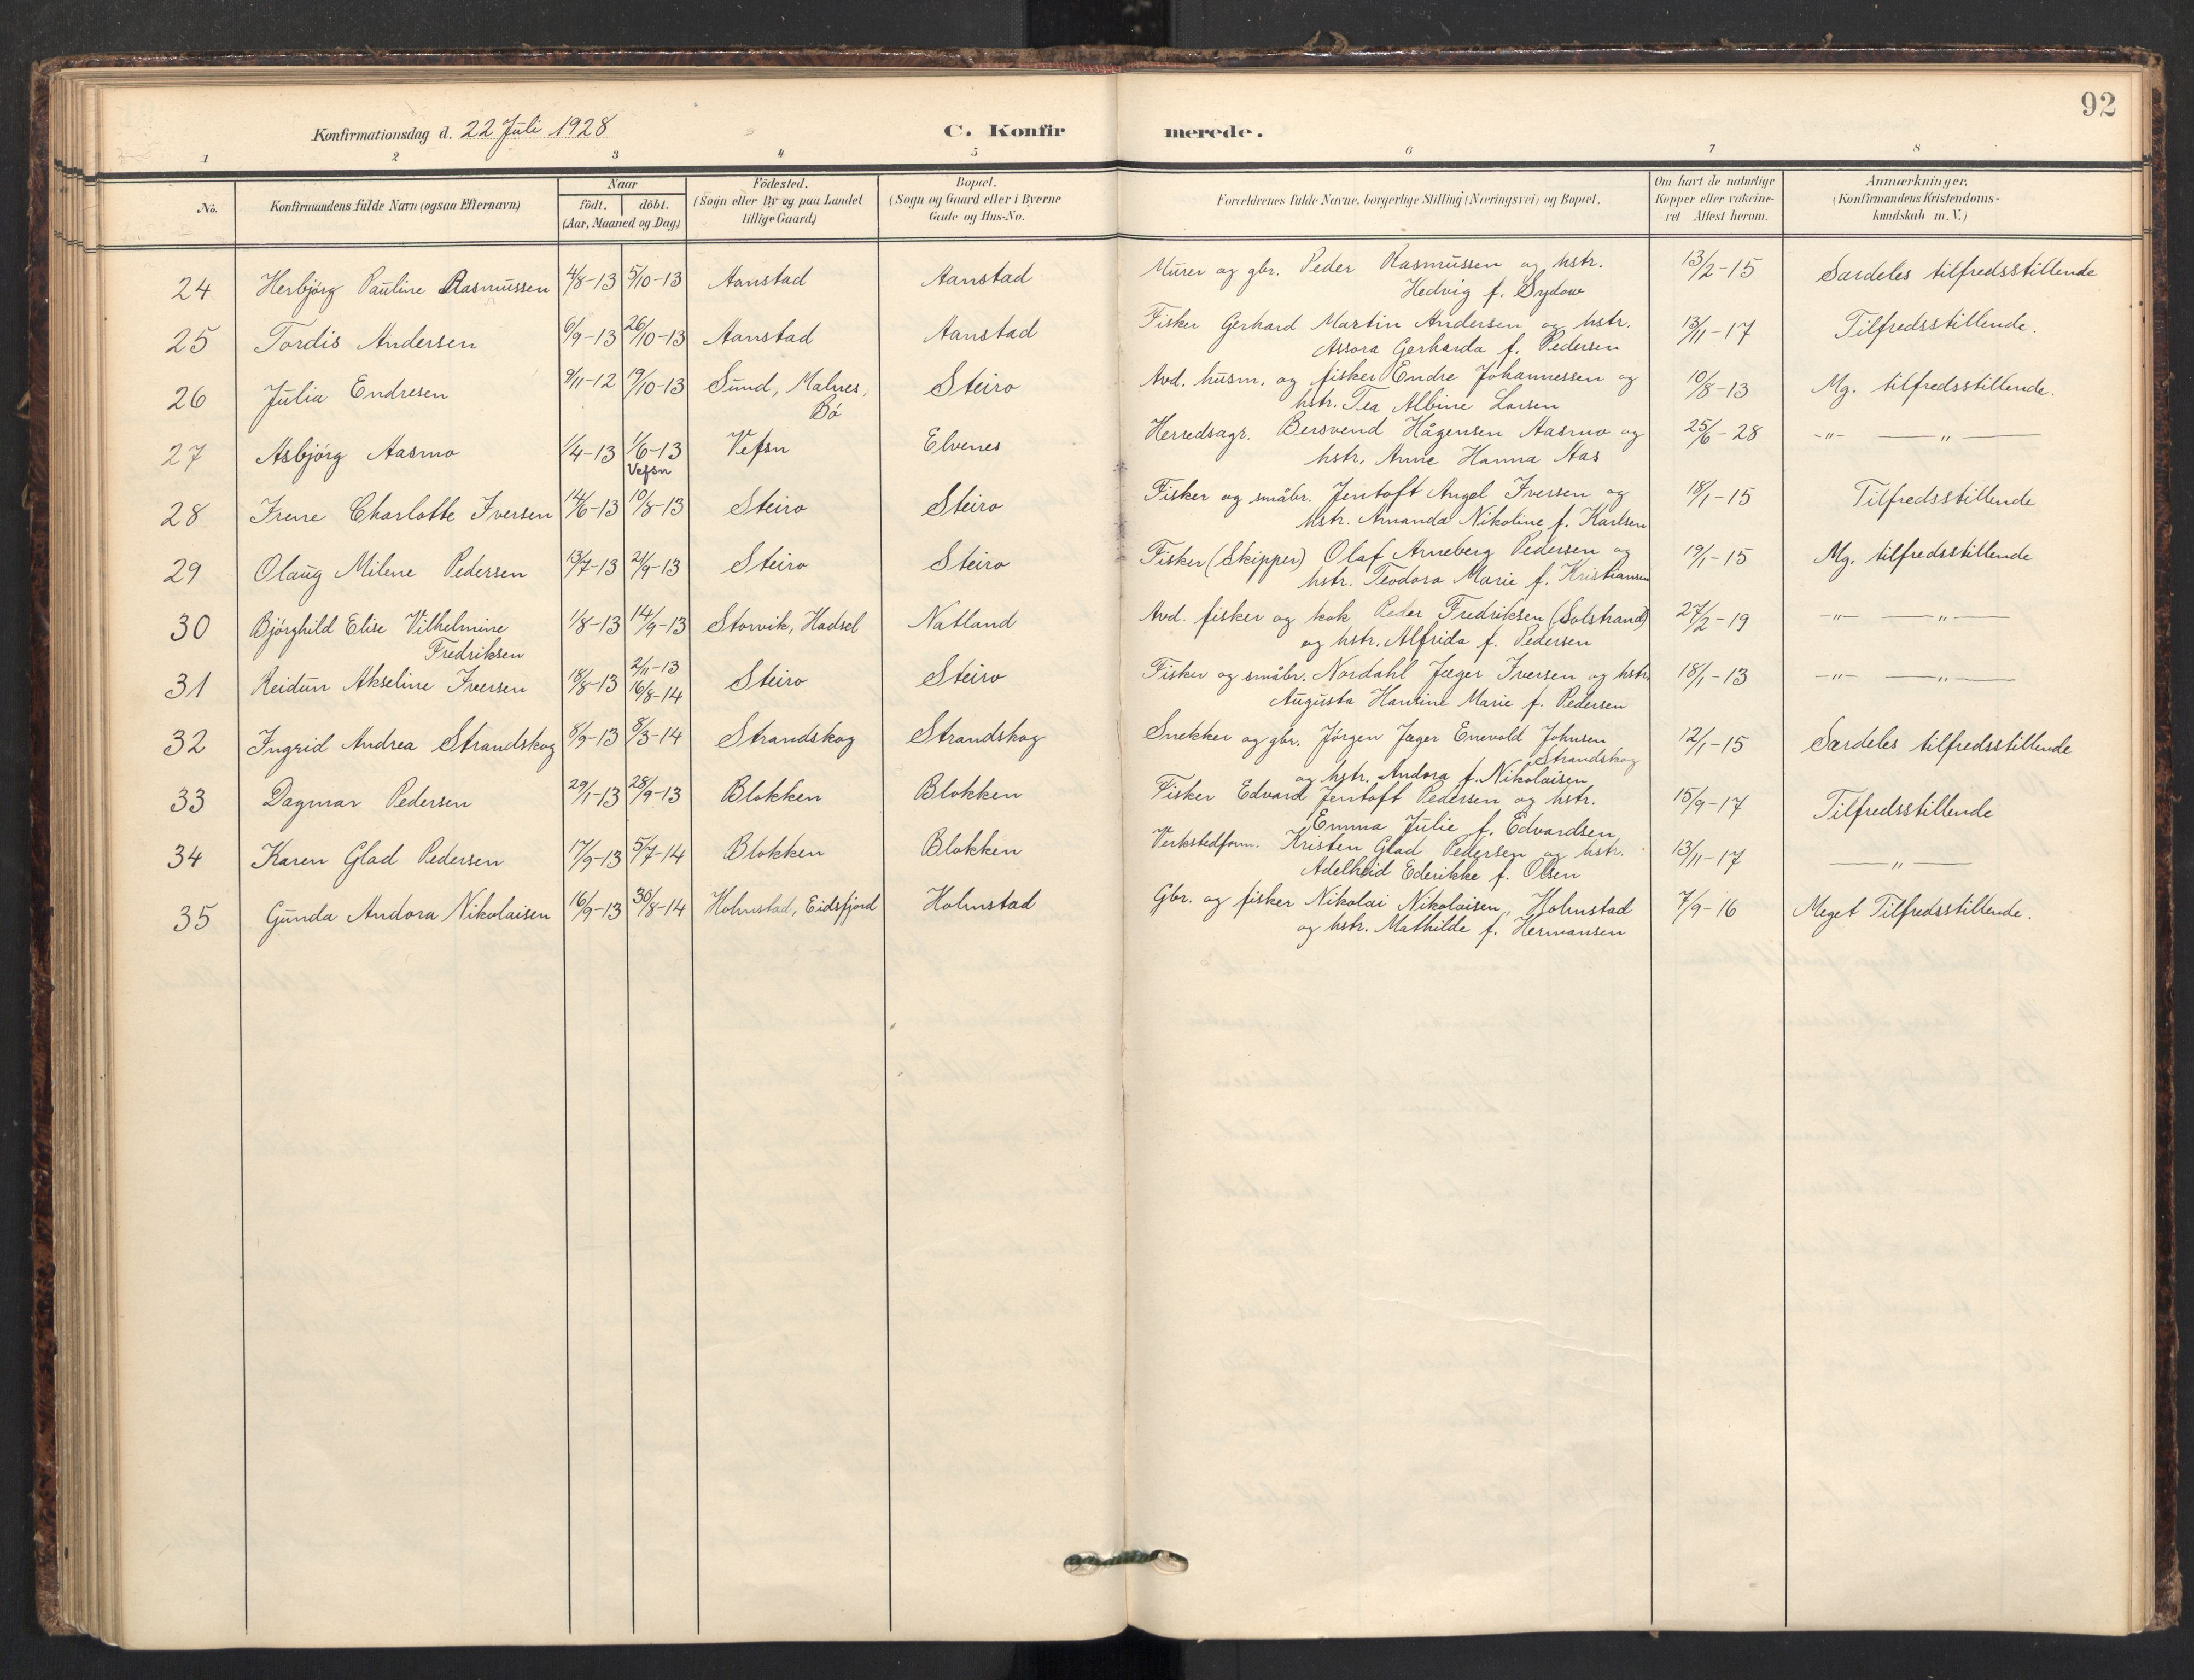 92
Konfirmationsdag d. 22 Juli 1928 C. Konfir merede.
1 2 3 4 5 6 7 8
No. Konfirmandens fulde Navn (ogsaa Efternavn) Naar født. døbt. (Aar, Maaned og Dag) Födested. (Sogn eller By og paa Landet tillige Gaard) Bopæl. (Sogn og Gaard eller i Byerne Gade og Hus-No. Forældrenes fulde Navne, borgerlige Stilling (Næringsvei) og Bopæl. Om havt de naturlige Kopper eller vakcineret Attest herom. Anmærkninger, (Konfirmandens Kristendomskundskab m. V.)
24 Herbjørg Pauline Rasmussen 4/8-13 5/10-13 Aanstad Aanstad Murer og gbr. Peder Rasmussen og hstr. 13/2-15 Særdeles tilfredsstillende
Hedvig f. Sydow
25 Tordis Andersen 6/9-13 26/10-13 Aanstad Aanstad Fisker Gerhard Martin Andersen og hstr. 13/11-17 Tilfredsstillende.
Assora Gerharda f. Pedersen
26 Julia Endresen 9/11-12 19/10-13 Sund, Malnes, Steiro Avd. husm. og fisker Endre Johannessen og 10/8-13 Mg. tilfredsstillende.
Bø hstr. Tea Albine Larsen
27 Asbjørg Aasmo 1/4-13 1/6-13 Vefsn Elvenes Herredsagr. Bersvend Hågensen Aasmo og 25/6-28 -"- — " —
Vefsn hstr. Anne Hanna Aas
28 Irene Charlotte Iversen 14/6-13 10/8-13 Steiro Steiro Fisker og småbr. Jentoft Angel Iversen og 18/1-15 Tilfredsstillende
hstr. Amanda Nikoline f. Karlsen
29 Olaug Milene Pedersen 13/7-13 21/9-13 Steiro Steiro Fisker (Skipper) Olaf Arneberg Pedersen og 19/1-15 Mg. tilfredsstillende
hstr. Teodora Marie f. Kristiansen
30 Bjørghild Elise Vilhelmine 1/8-13 14/9-13 Storvik, Hadsel Natland Avd. fisker og kok Peder Fredriksen (Solstrand) 27/2-19 -"- — " —
Fredriksen og hstr. Alfrida f. Pedersen
31 Reidun Akseline Iversen 18/8-13 2/11-13 Steiro Steiro Fisker og småbr. Nordahl Jæger Iversen og hstr. 18/1-13 -"- — " —
16/8-14 Augusta Hansine Marie f. Pedersen
32 Ingrid Andrea Strandskog 8/9-13 8/3-14 Strandskog Strandskog Snekker og gbr. Jørgen Jæger Enevold Johnsen 12/1-15 Særdeles tilfredsstillende
Strandskog
og hstr. Andora f. Nikolaisen
33 Dagmar Pedersen 29/1-13 28/9-13 Blokken Blokken Fisker Edvard Jentoft Pedersen og hstr. 15/9-17 Tilfredsstillende
Emma Julie f. Edvardsen
34 Karen Glad Pedersen 17/9-13 5/7-14 Blokken Blokken Verkstedform. Kristen Glad Pedersen og hstr. 13/11-17 — " —
Adelheid Ederikke f. Olsen
35 Gunda Andora Nikolaisen 16/9-13 30/8-14 Holmstad, Eidsfjord Holmstad Gbr. og fisker Nikolai Nikolaisen, Holmstad 7/9-16 Meget Tilfredsstillende.
og hstr. Mathilde f. Hermansen